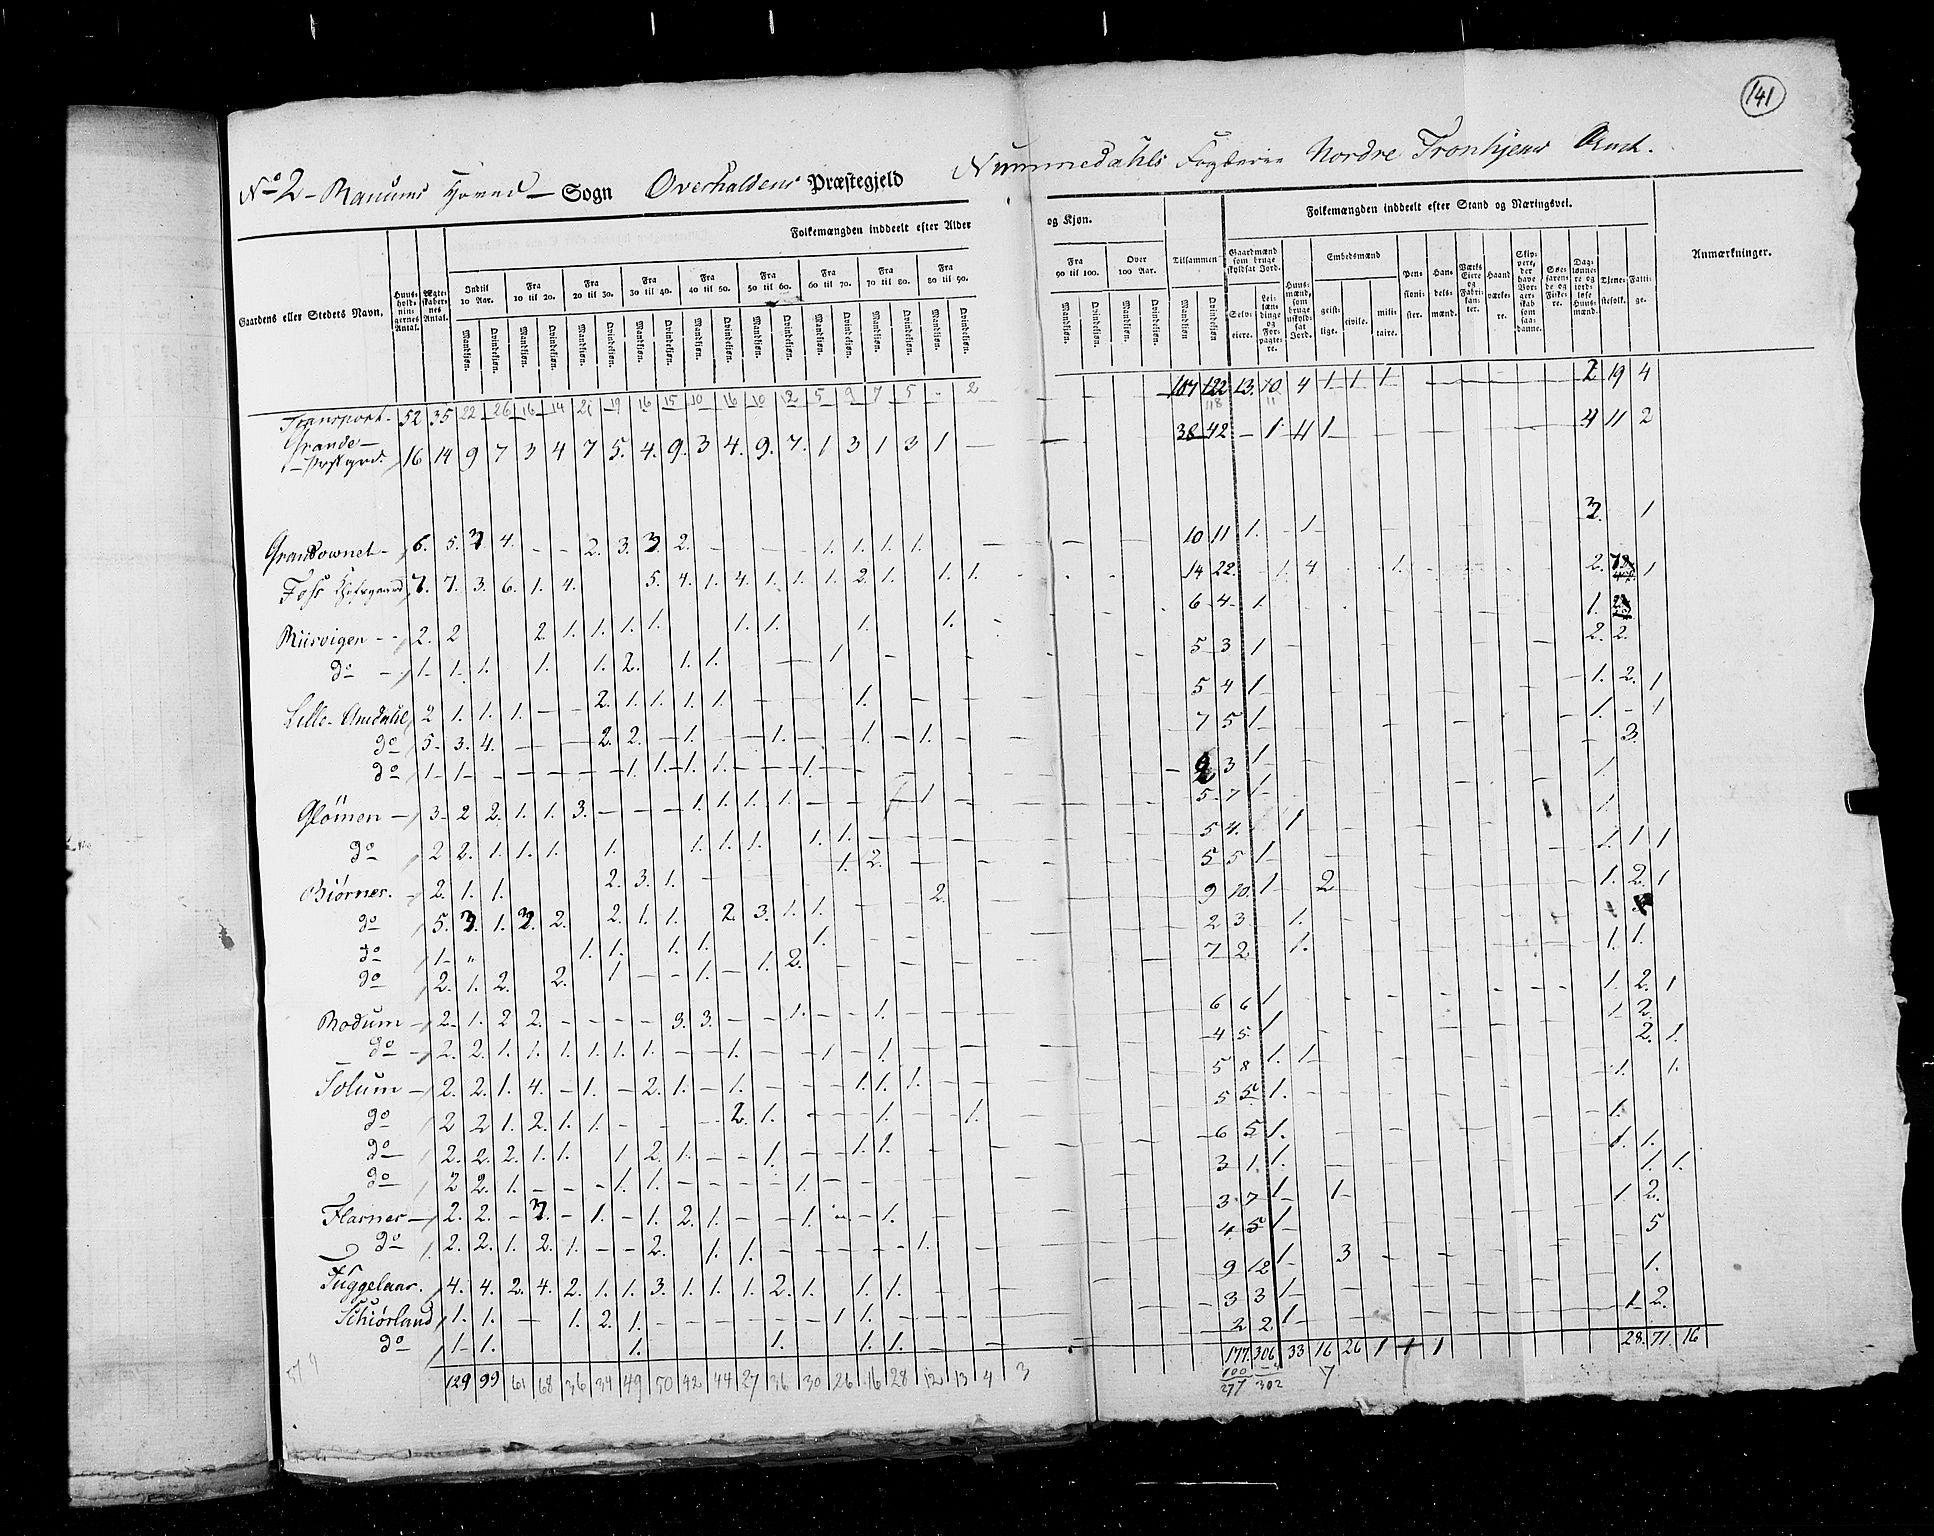 141
No 2 – Ranums Hoved – Sogn Overhaldens Præstegjeld Nummedahls Fogderie Nordre Tronhjems Amt.
Folkemængden inddeelt efter Alder og Kjøn. Folkemængden inddeelt efter Stand og Næringsvei.
Gaardens eller Stedets Navn. Huusholdningernes Antal. Ægteskabernes Antal. Indtil 10 Aar. Fra 10 til 20. Fra 20 til 30. Fra 30 til 40. Fra 40 til 50. Fra 50 til 60. Fra 60 til 70. Fra 70 til 80. Fra 80 til 90. Fra 90 til 100. Over 100 Aar. Tilsammen Gaardmænd som bruge skyldsat Jord. Huusmænd, som bruge uskyldsat Jord. Embedsmænd Pensionister. Handelsmænd. Værks Eiere og Fabrikanter. Haandværkere. Skippere, der have Borgerskab som saadanne. Søefarende og Fiskere. Daglønnere og jordløse Huusmænd. Tjenestefolk. Fattige. Anmærkninger.
Mandkjøn. Qvindekjøn. Selveiere. Leilændinge og Forpagtere. geistlige. civile. militaire.
Transport. 52 35 22 26 16 14 21 19 16 15 10 16 10 12 5 9 7 5 - 2 107 122 13. 10 4 1 1 1 2 19 4
118 11
Grande – Præstgrd. 16 14 9 7 3 4 7 5. 4. 9. 3 4. 9. 7. 1 3 1 3 1 – 38 42 – 1 4 1 4 11 2
Grandownet – 6. 5. 3 4. – – 2. 3. 3. 2. – – – – 1. 1. 1. 1. – 10 11 1. 1 2. 1
Foss 7. 7. 3. 6. 1. 4. 5. 4. 1. 4. 1. 1. 1. 2. 1. 1. 1. 14 22. 1. 4 1. 2. 1
Riisvigen – 2. 2 2. 1. 1. 1. 1. 1. 1. 1. 1. 6 4 1. 1.
do – 1 1. 1. 1. 1. 2. 1. 1. 1 5 3 1 2. 2.
Lille Amdahl 2 1. 1. 1. – – 2. 1. 1. 1. 1. – – – 1. 5 4 1 1. 2. 1
do 5. 3. 4. – – – 2. 2. – 1. – – 1. – – 1. – 1. 7 5 1 1. – 1
do 1 1 – – – – – 1. 1. 1. 1. – – 1. 3 1 3.
Glömen – 3 2 2. 1. 1. 3. – – – 1. 1. 1. 1. – – – 1 5 7 1 1.
do 2 2. 1. 1. 1. 1. 1. 1. 1. 1. 1. – 5 4. 1 1.
Biörnes. – 2. 1. 1. 2. 3. 1. 1. 2. 5 5 1 1. 1 1
do 5. 3. 1. 2. 2. 2. 1. 1. 2. 3. 1. 1. 2. 9 10. 1 2 1. 2. 1
do 1 " 1. 1. 1. 1. 1. 2 3. 1.
do 2. 1. 2. 2. 1 – – 1. – 1. 2. – 7 2. 1. 1. 1.
Rodum – 2. 1. 2 2. – – – – 3. 3. – – 1. – – 1. – 6 6 1 1. 2. 1
do 2. 2. 1. 1. 1. 1. 1. 1. – – 1. – – 1 – 1. – 4 5. 1 1 2.
Solum – 2. 2. 1. 4. – 1. – 2. 1. – 1. – – – 1. 1. 1. – 5 8 1. 1 2. 1.
do 2 2 1. 2. 1. 1. – – – – 2. 1. – – – 1. 1. 5 5. 1. 1. 1.
do 2. 2. 2. 1. 1. 1 2. 1. – – 1. 1. 1. 6 5 1. 1.
do 2 2. 1. – – – 1. 1. – 1. 3 1. 1. 1. 1.
Flasnes – 2. 2. – 3. – 1. – 1. 2. 1. – – 1. – – 1. – 3 7 1 1 1. 1.
do 2. 2. 1. 2. 1. – – 2. 1. 1. – – – – – 1. 4 5 1 1. 2.
Tuggelaar. 4. 4. 2. 4. 2. 1. 1. 3. 1. 1. 1. 2. 1. 1. 1. – 9 12 1 3 5
Schiörland 1. 1. – – 1. 2. 1. – – – – – – 1 1. – 3 3 1 1.
do 1. 1. 1. 1. 1. 1. – 2 2 1 1. 2.
129 99 61 68 36 34 49 50 42 44 27 36 30 26 16 28 12 13 4 3 177. 306 33 16 26 1 1 1 28. 71. 16
100 277 302